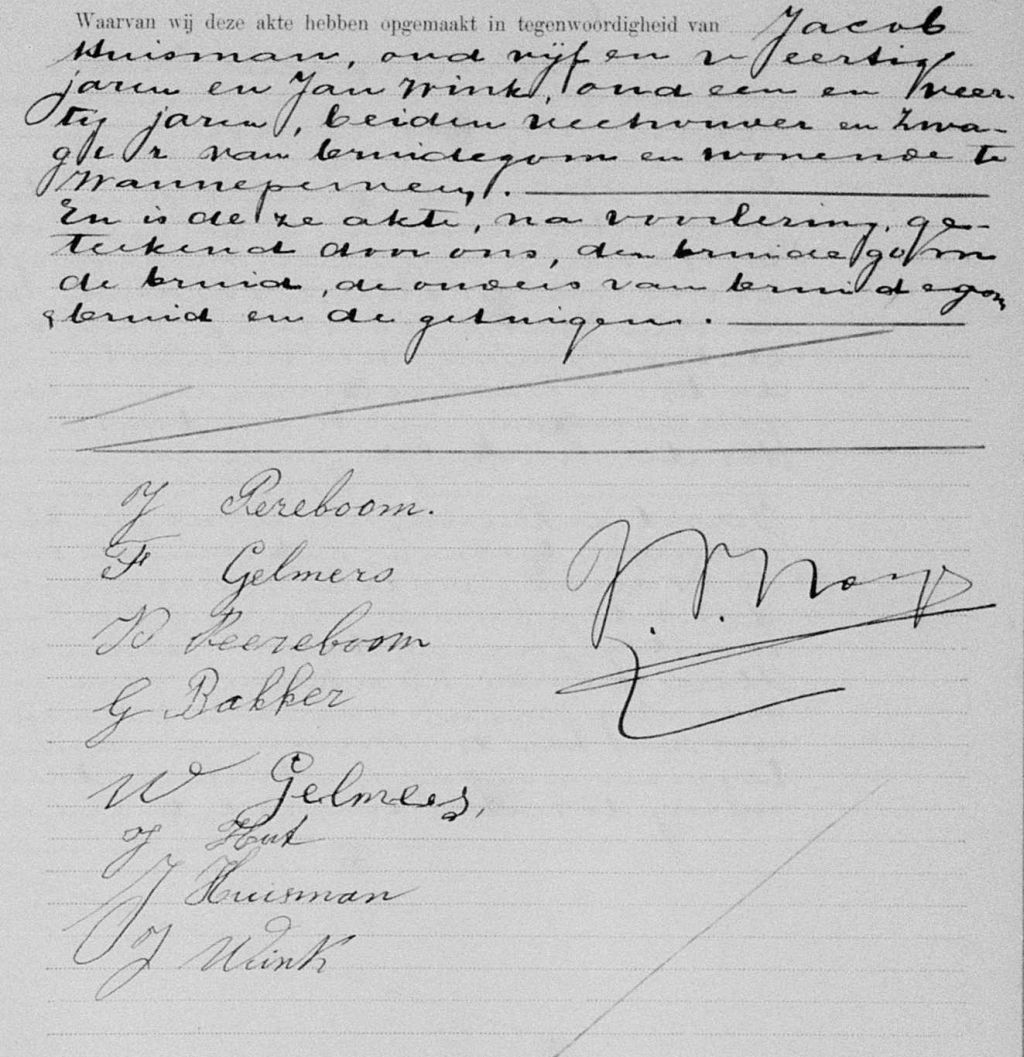 Waarvan wij deze akte hebben opgemaakt in tegenwoordigheid van Jacob
Huisman, oud vijf en veertig
jaren en Jan Wink, oud een en veer-
tig jaren, beiden veehouder en zwa-
ger van bruidegom en wonende te
Wanneperveen.
En is deze akte, na voorlezing, ge-
teekend door ons, den bruidegom
de bruid, de ouders van bruidegom
& bruid en de getuigen.
J Pereboom.
F Gelmers
K Peereboom
G Bakker
W Gelmers,
J Hut
J Huisman
J Wink